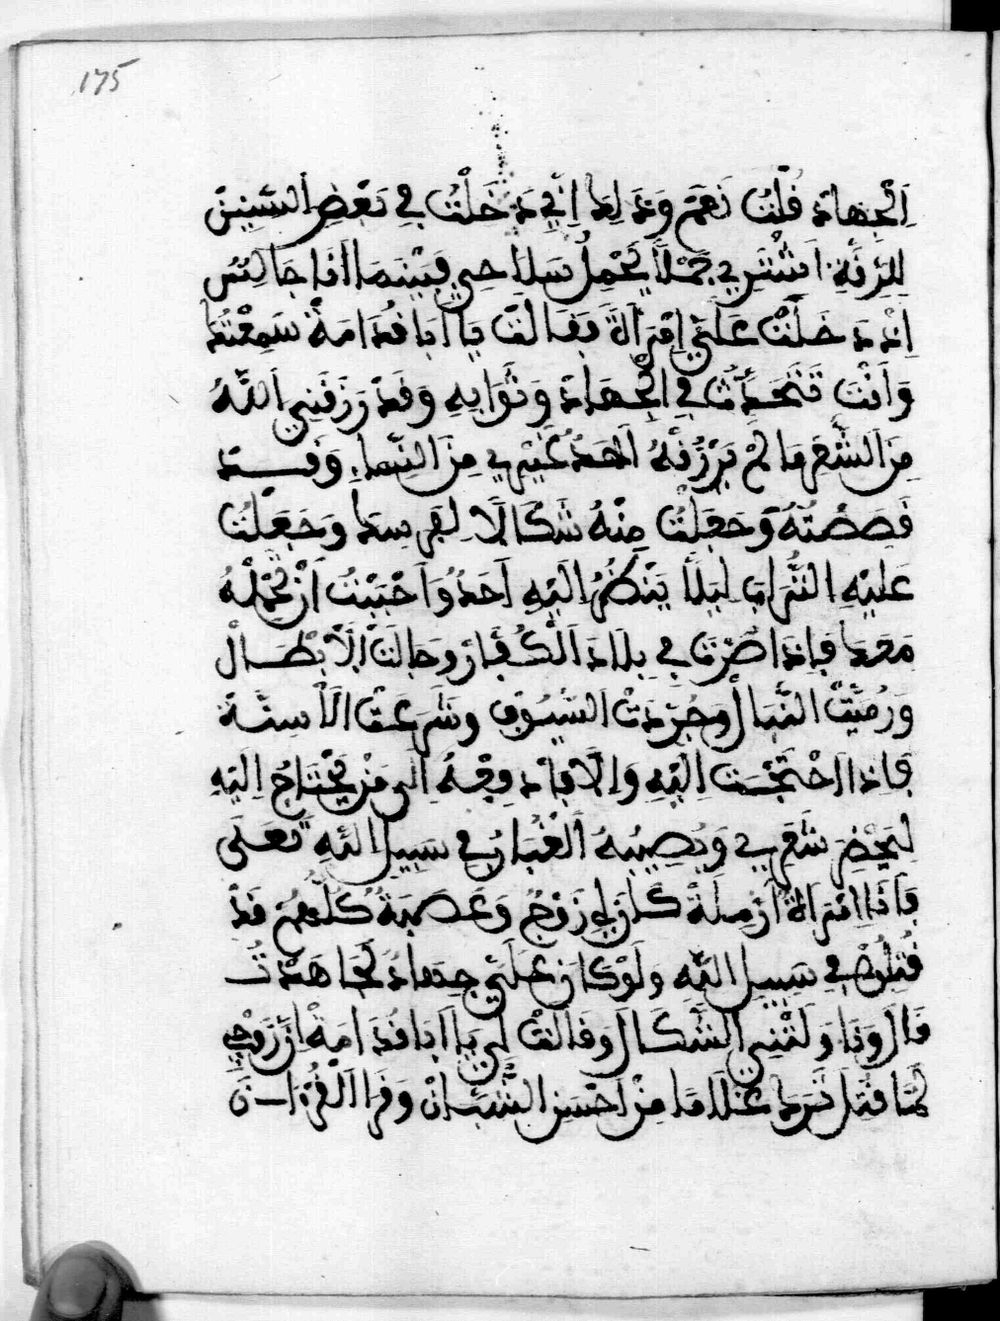 175
اِلْجِهَادِ قُلْتُ نَعَمْ وَذَلِكَ اِنِّي دَخَلْتُ فِي بَعْضِ السِّنِينَ
لِلرِّقَّةِ اشْتَرِي جَمَلًا يَحْمِلُ سَلَاحِي فَبَيْنَمَا اَنَا جَالِسٌ
اِذْ دَخَلَتْ عَلَيَّ اِمْرَاَةٌ فَقَالَتْ يَا اَبَا قُدَامَةَ سَمِعْتُكَ
وَاَنْتَ تَتَحَدَّثُ فِي الْجِهَادِ وَثَوَابِهِ وَقَدْ رَزَقَنِي اللَّهُ
مِنَ الشَّعَرِ مَا لَمْ يَرْزُقْهُ اَحَدٌ غَيْرِي مِنَ النِّسَاءِ وَقَدْ
قَصَصْتُهُ وَجَعَلْتُ مِنْهُ شَكَالًا لِفَرَسِكَ وَجَعَلْتُ
عَلَيْهِ التُّرَابَ لِيَلَّا يَنْظُرُ اِلَيْهِ اَحَدٌ وَاَحْبَبْتُ اَنْ تَحْمِلَهُ
مَعَكَ فَاِذَا صِرْتَ فِي بِلَادِ الْكُفَّارِ وَجَالَتْ الْاَبْطَالْ
وَرُمِيَّتْ النِّبَالُ وَجُرِّدَتْ السُّيُوفُ وَشَرَعَتْ الْاَسِنَّةُ
فَاِذَا احْتَجْتَ اِلَيْهِ وَاِلَّا فَادْفِعْهُ اِلَى مَنْ يَحْتَاجُ اِلَيْهِ
لِيَحْضِرَ شَعَرِي وَيُصِيبُهُ الْغُبَارُ فِي سَبِيلِ اللَّهِ تَعَلَى
فَاَنَا امْرَاَةٌ اَرْمِلَةٌ كَانَ لِي زَوْجٌ وَعَصَبَةٌ كُلُّهُمْ قَدْ
قُتِلُوا فِي سَبِيلِ اللَّهِ وَلَوْ كَانَ عَلَيَّ جِهَادٌ لَجَاهَدْتُ
قَالَ وَنَاوَلَتْنِي الشِّكَالَ وَقَالَتْ لِي يَا اَبَا قُدَامَةَ اِنَّ زَوْجِي
لَمَّا قُتِلَ تَرَكَ غُلَامًا مِنْ اَحْسَنِ الشُّبَّانِ وَقَرَا الْقُرْاَنَ